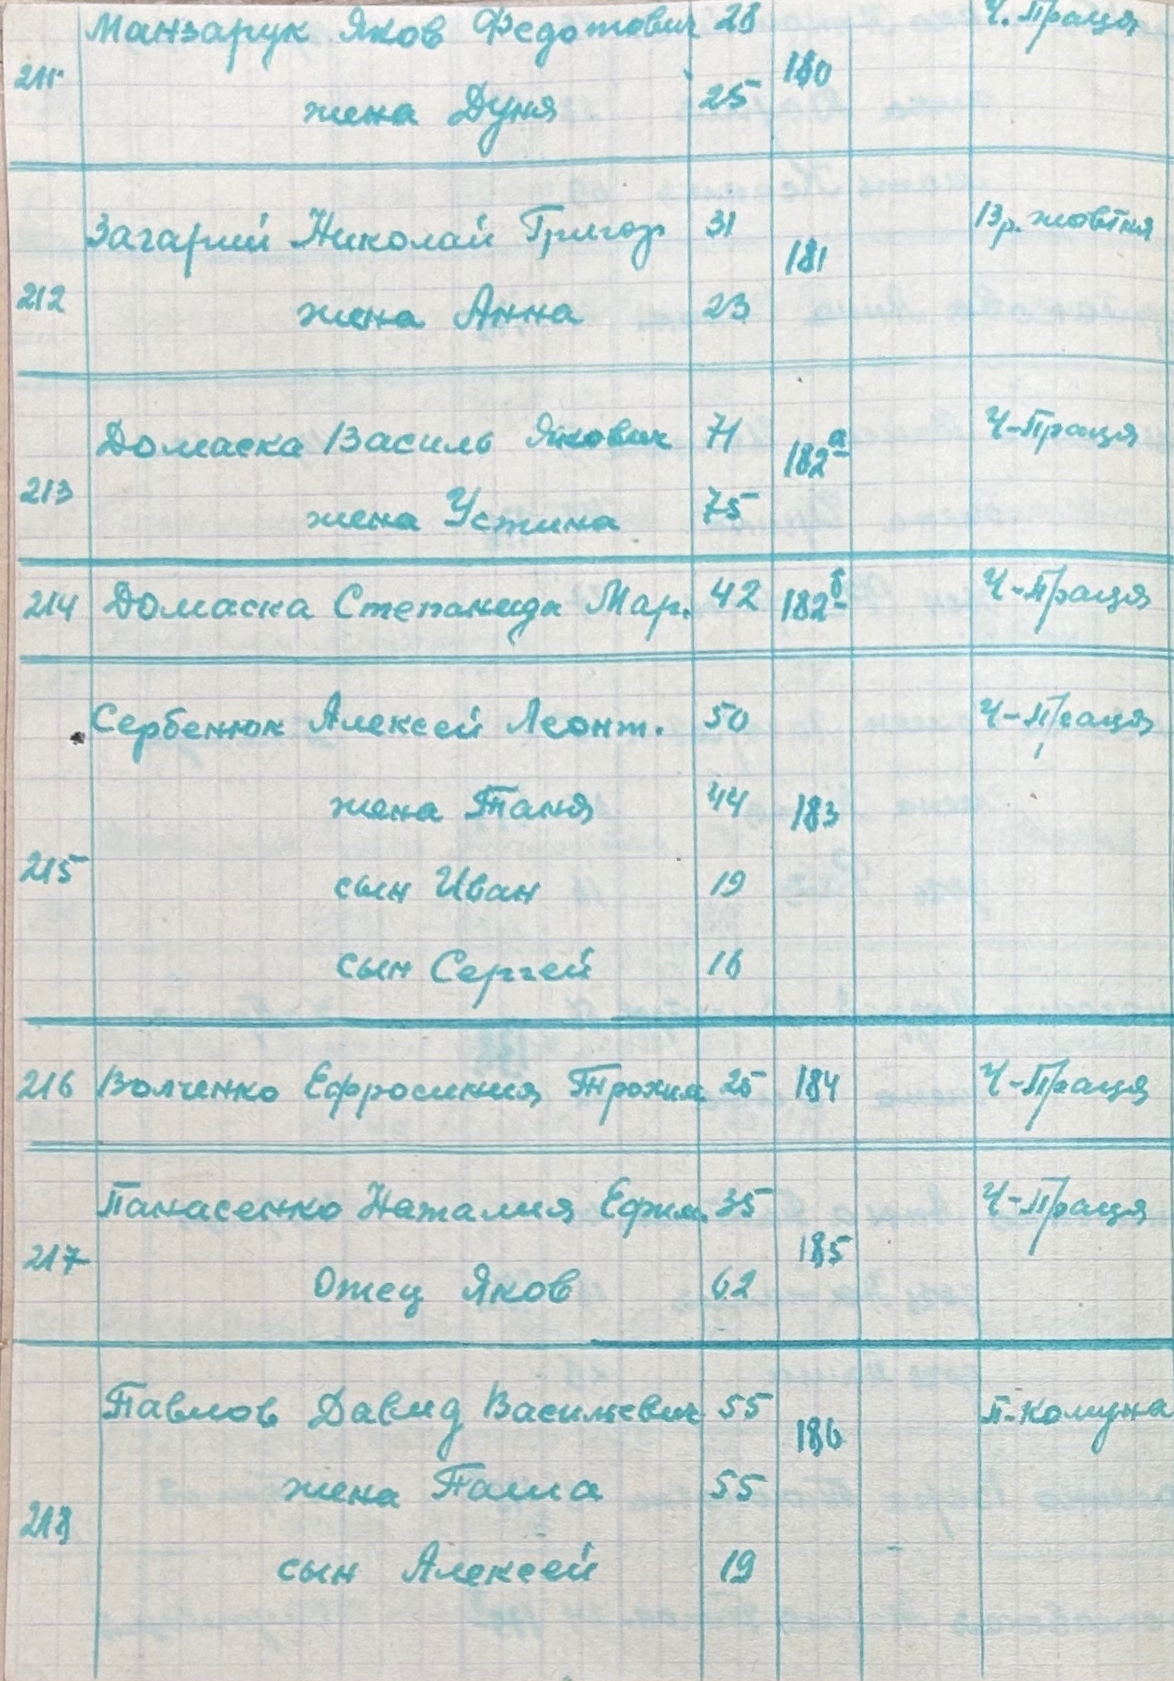 Манзарук Яков Федотович 28 Ч. Праця
211 180
жена Дуня 25
Загарий Николай Григор 31 13 р. жовтня
181
212 жена Анна 23
Домаска Василь Якович 71 Ч-Праця
182а
213 жена Устина 75
214 Домаска Степанида Мар. 42 182б Ч-Праця
Сербенюк Алексей Леонт. 50 Ч-Праця
жена Таня 44 183
215 сын Иван 19
сын Сергей 16
216 Волченко Ефросиния Трохим 25 184 Ч-Праця
Панасенко Наталия Ефим. 35 Ч-Праця
185
217 Отец Яков 62
Павлов Давид Васильевич 55 П-Комуна
186
жена Паша 55
218
сын Алексей 19